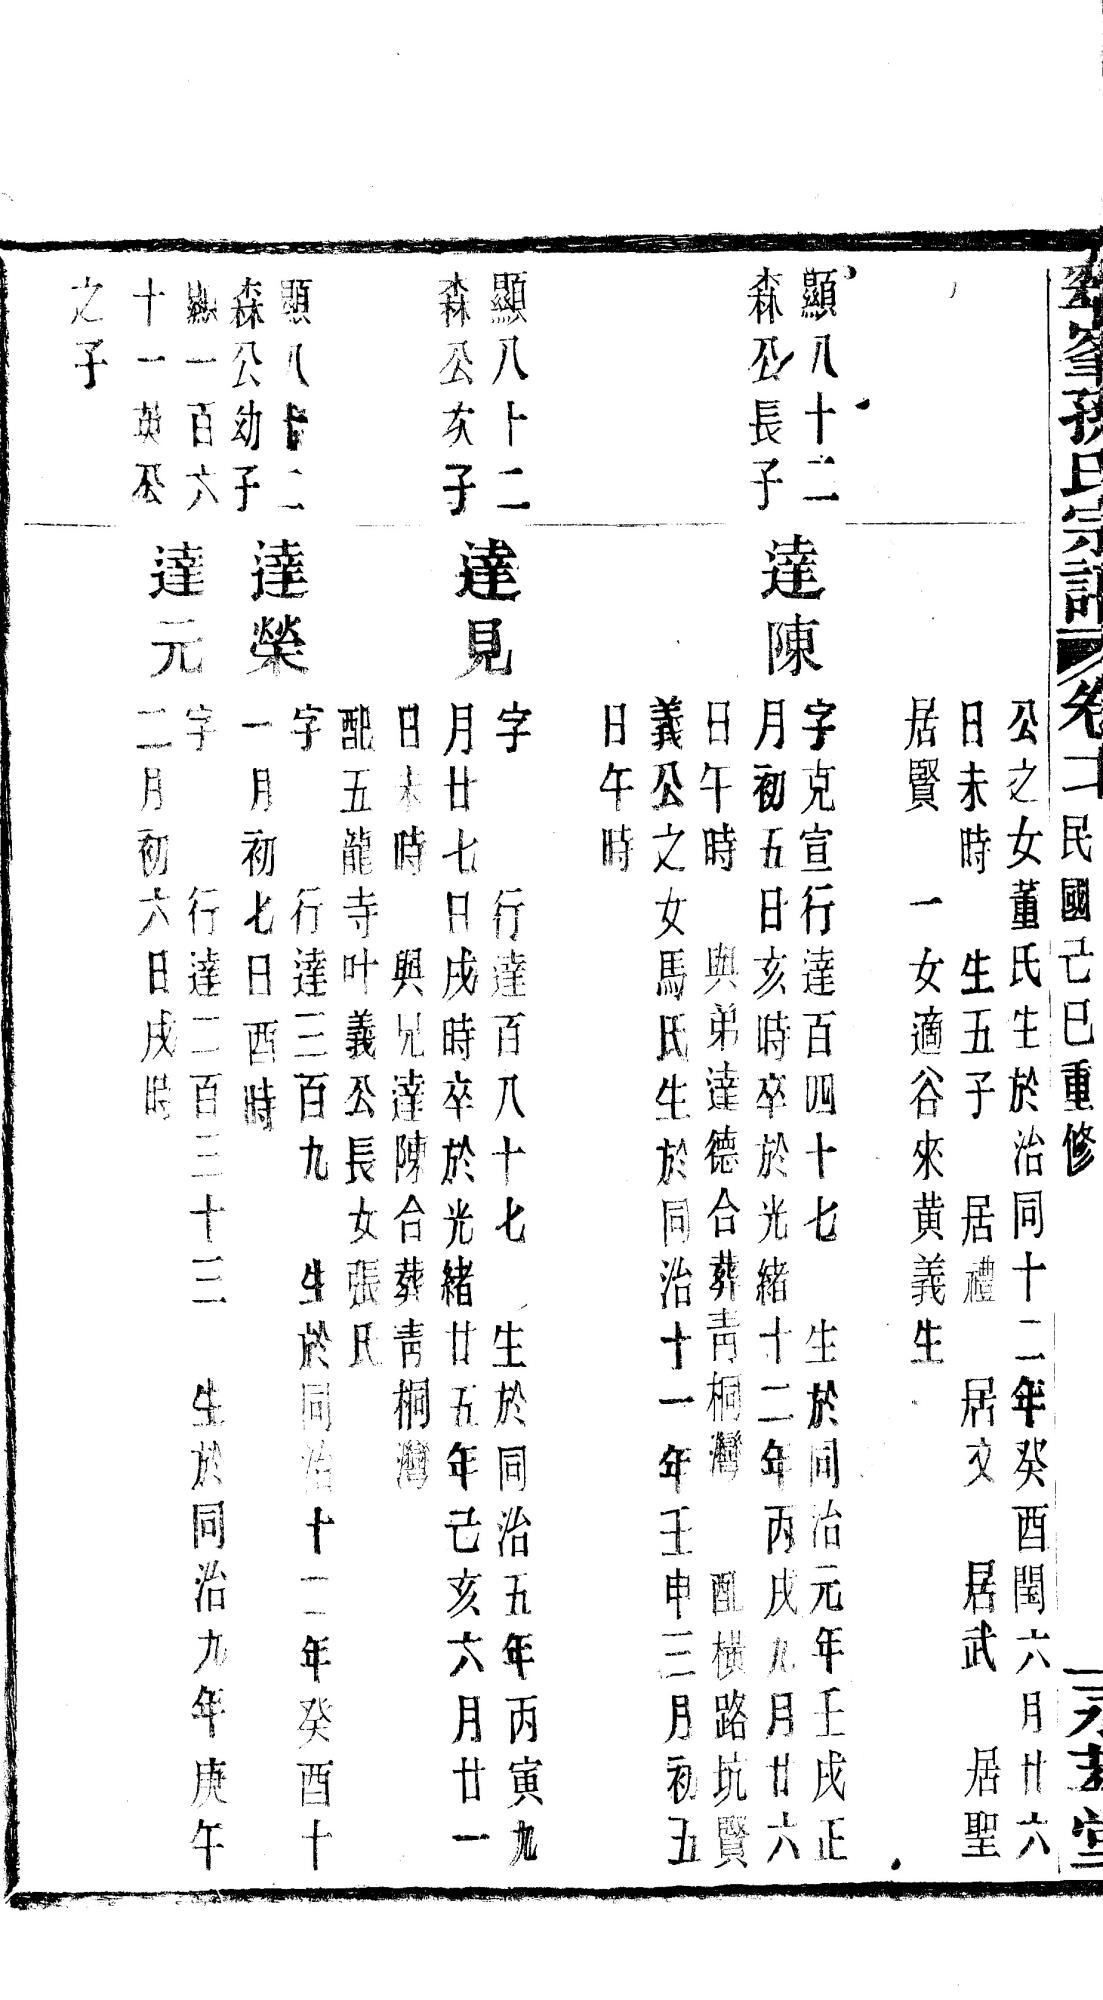 峯孫氏宗譜
卷二
民國己巳重修
公之女董氏生於治同十二年癸酉閏六月廿六
日未時 生五子 居禮 居文 居武 居聖
居賢 一女適谷來黄義生
顯八十二
森公長子
達陳
字克宣行達百四十七 生於同治元年壬戌正
月初五日亥時卒於光緒十二年丙戌九月廿六
日午時 與弟達德合葬青桐灣 配横路坑賢
義公之女馬氏生於同治十一年壬申三月初五
日午時
顯八十二
森公次子
達見
字 行達百八十七 生於同治五年丙寅九
月廿七日戌時卒於光緒廿五年己亥六月廿一
日未時 與兄達陳合葬青桐灣
配五龍寺叶義公長女張氏
顯八十二
森公幼子
達榮
字 行達三百九 生於同治十二年癸酉十
一月初七日酉時
顯一百六
十一英公
之子
達元
字 行達二百三十三 生於同治九年庚午
二月初六日戌時